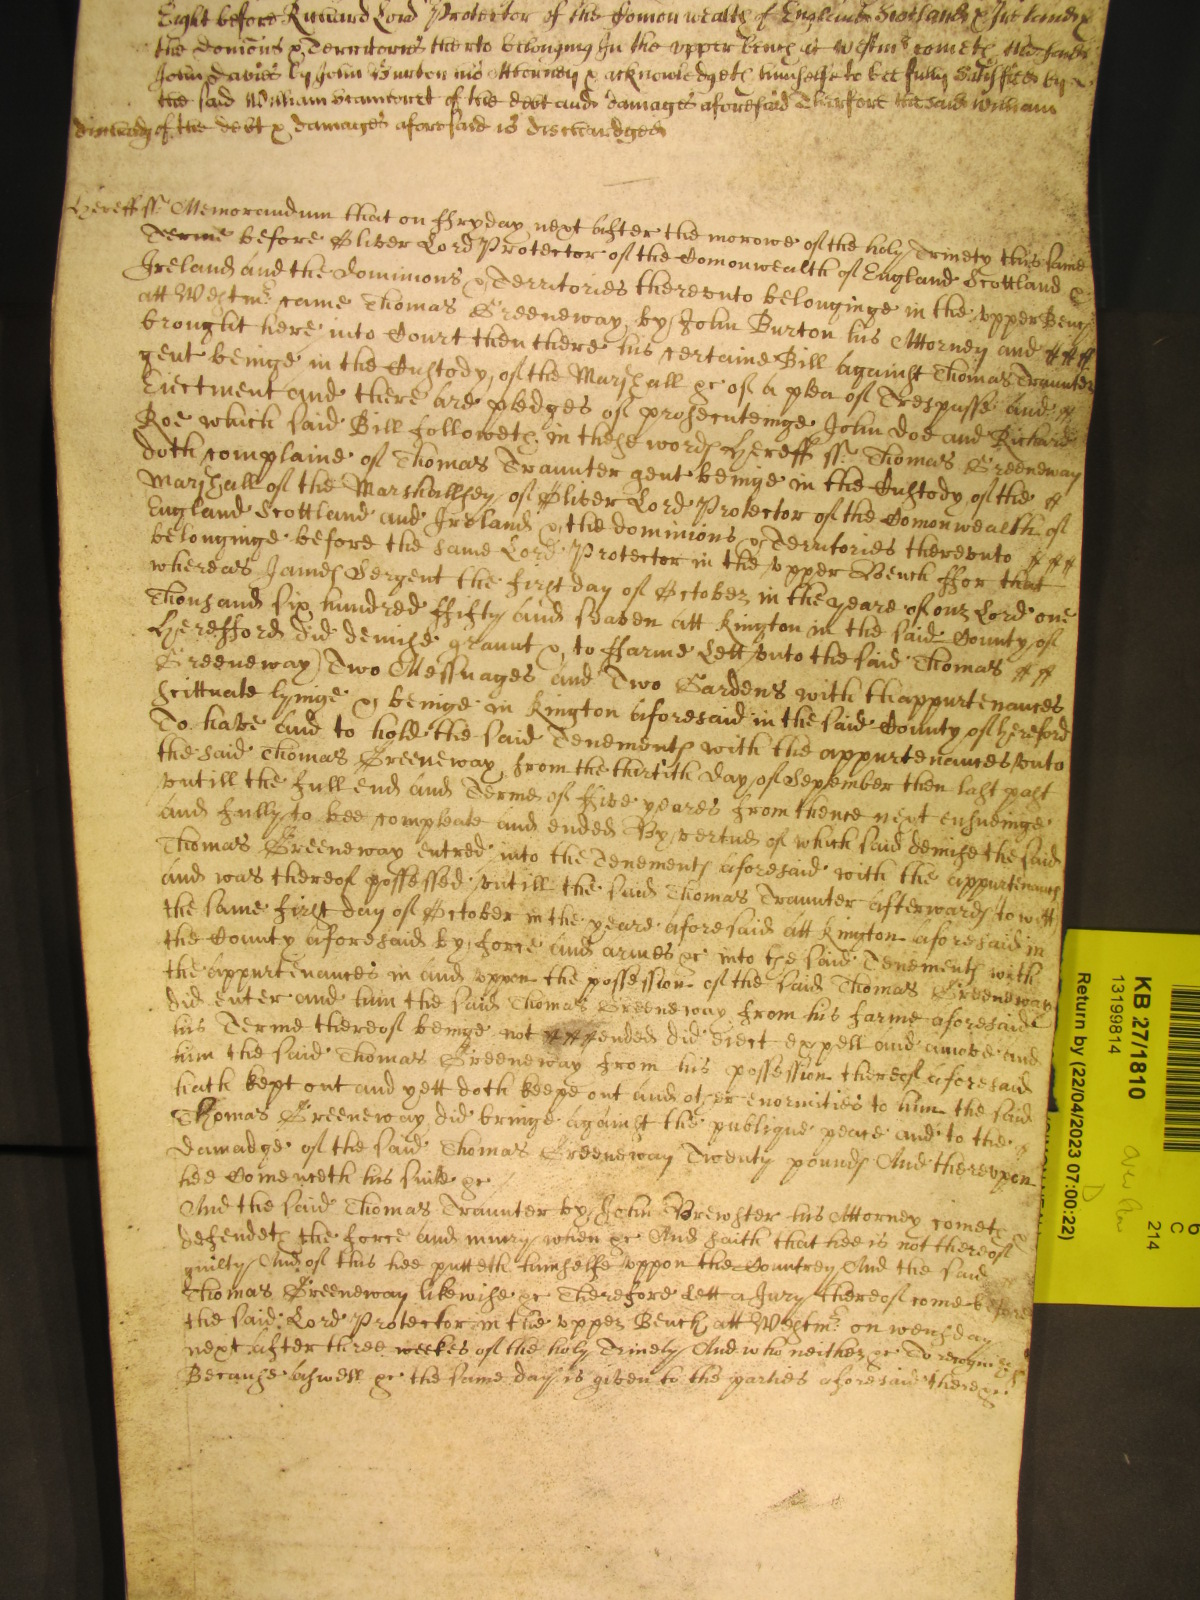 Eight before Richard Lord Protector of the Comonwealth of England Scotland & Ireland &
the dominõns & Territories therto belonging In the upper bench at Westmr cometh the said
John Davies by John Burton his Attorney & acknowledgeth himselfe to bee fully Satisfied by
the said William of the debt and damages aforesaid Therfore the said William
of the debt & damages aforesaid is discharged
Hereff ss Memorandum that on ffryday next after the morowe of the holy Trinety this same
Terme before Oliver Lord Protector of the Comonwealth of England Scottland &
Ireland and the Dominions & Territories thereunto belonginge in the upper Bench
att Westmr came Thomas Greeneway by John Burton his Attorney and
brought here into Court then there his certaine Bill against Thomas Traunter
gent beinge in the Custody of the Marshall &c of a plea of Trespasse and
Eiectment and there are pledges of prosecuteinge John Doe and Richard
Roe which said Bill followeth in these words Hereff ss Thomas Greeneway
doth complaine of Thomas Traunter gent beinge in the Custody of the
Marshall of the Marshallsey of Oliver Lord Protector of the Comonwealth of
England Scottland and Ireland & the dominions & Territories thereunto
belonginge before the same Lord Protector in the upper Bench ffor that
whereas James Sergent the first day of October in the yeare of our Lord one
Thousand six hundred ffifty and seaven att Kington in the said County of
Herefford did demise graunt & to ffarme Lett unto the said Thomas
Greeneway Two Messuages and Two Gardens with thappurtenances
scittuate lyinge & beinge in Kington aforesaid in the said County of hereford
To have and to hold the said Tenements with the appurtenances unto
the said Thomas Greeneway from the thirtith day of September then last past
untill the full end and Terme of five yeares from thence next ensueinge
and fully to bee compleate and ended By vertue of which said demise the said
Thomas Greeneway entred into the Tenements aforesaid with the appurtenances
and was thereof possessed untill the said Thomas Traunter afterwards to witt
the same first day of October in the yeare aforesaid att Kington aforesaid in
the County aforesaid by force and armes &c into the said Tenements with
the appurtenances in and uppon the possession of the said Thomas Greeneway
did enter and him the said Thomas Greeneway from his farme aforesaid
his Terme thereof beinge not ended did eiect expell and amove and
him the said Thomas Greeneway from his possession thereof aforesaid
hath kept out and yett doth keepe out and other enormities to him the said
Thomas Greeneway did bringe against the publique peace and to the
damadge of the said Thomas Greeneway Twenty pounds And thereupon
hee Comenceth his suite &c
And the said Thomas Traunter by John Brewster his Attorney cometh &
defendeth the force and iniury when &c And saith that hee is not thereof
guilty And of this hee putteth himselfe uppon the Countrey And the said
Thomas Greeneway likewise &c Therefore Lett a Jury thereof come before
the said Lord Protector in the upper Bench att Westmr on wensday
next after three weekes of the holy Trinety And who neither &c To recognize &c
Because aswell &c the same day is given to the parties aforesaid there &c
KB 27/1810
13199814
Return by (22/04/2023 07:00:22)
6
C
214